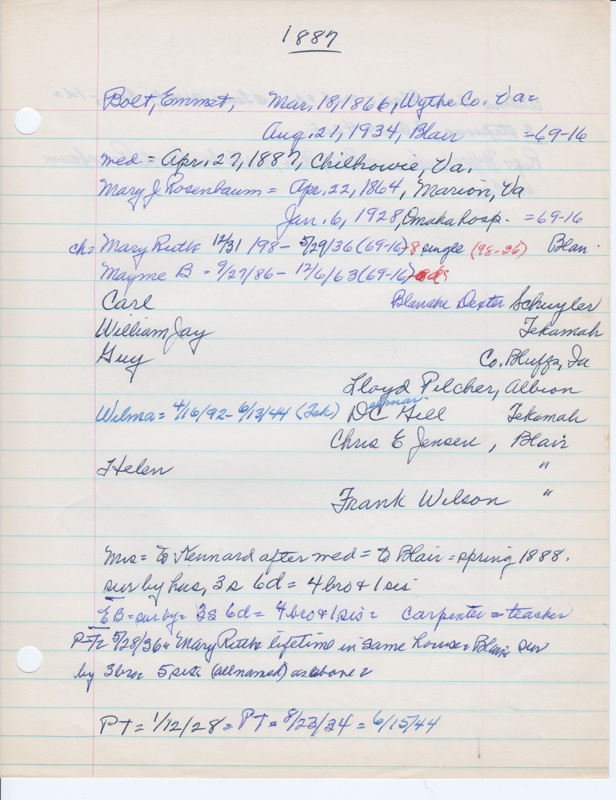 1887
Bolt, Emmet, Mar, 18, 1866, Wythe Co. Va=
Aug. 21, 1934, Blair = 69-16
med = Apr. 27, 1887, Chilhowie, Va.
Mary J. Rosenbaum = Apr. 22, 1864, Marion, Va
Jan. 6, 1928, Omaha hosp. = 69-16
ch= Mary Ruth 12/31/98 - 5/29/36 (69-16) 8 single (98-36) Blair
Mayme B = 9/27/86 - 12/6/63 (69-16)
Carl Blanche Dexter Schuyler
William Jay Tekamah
Guy Co. Bluffs, Ia
Lloyd Pilcher, Albion
Wilma = 4/16/92 - 6/13/44 (Tek) DC Hill Tekamah
Chris E Jensen, Blair
Helen "
Frank Wilson "
Mrs = to Kennard after med = to Blair = spring 1888.
sur by hus, 3 s 6d = 4 bro & 1 sis
EB = sur by = 3s 6d = 4 bro & 1 sis = carpenter = teacher
PT= 5/28/36= Mary Ruth lifetime in same house = Blair sur
by 3 bro= 5 sis (all named) as above =
PT = 1/12/28 = PT = 8/23/34 = 6/15/44